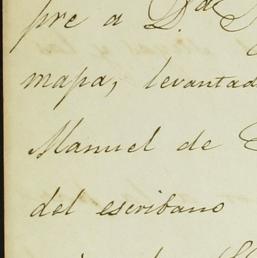 pre a D.ª
mapa, levantad
Manuel de
del escribano